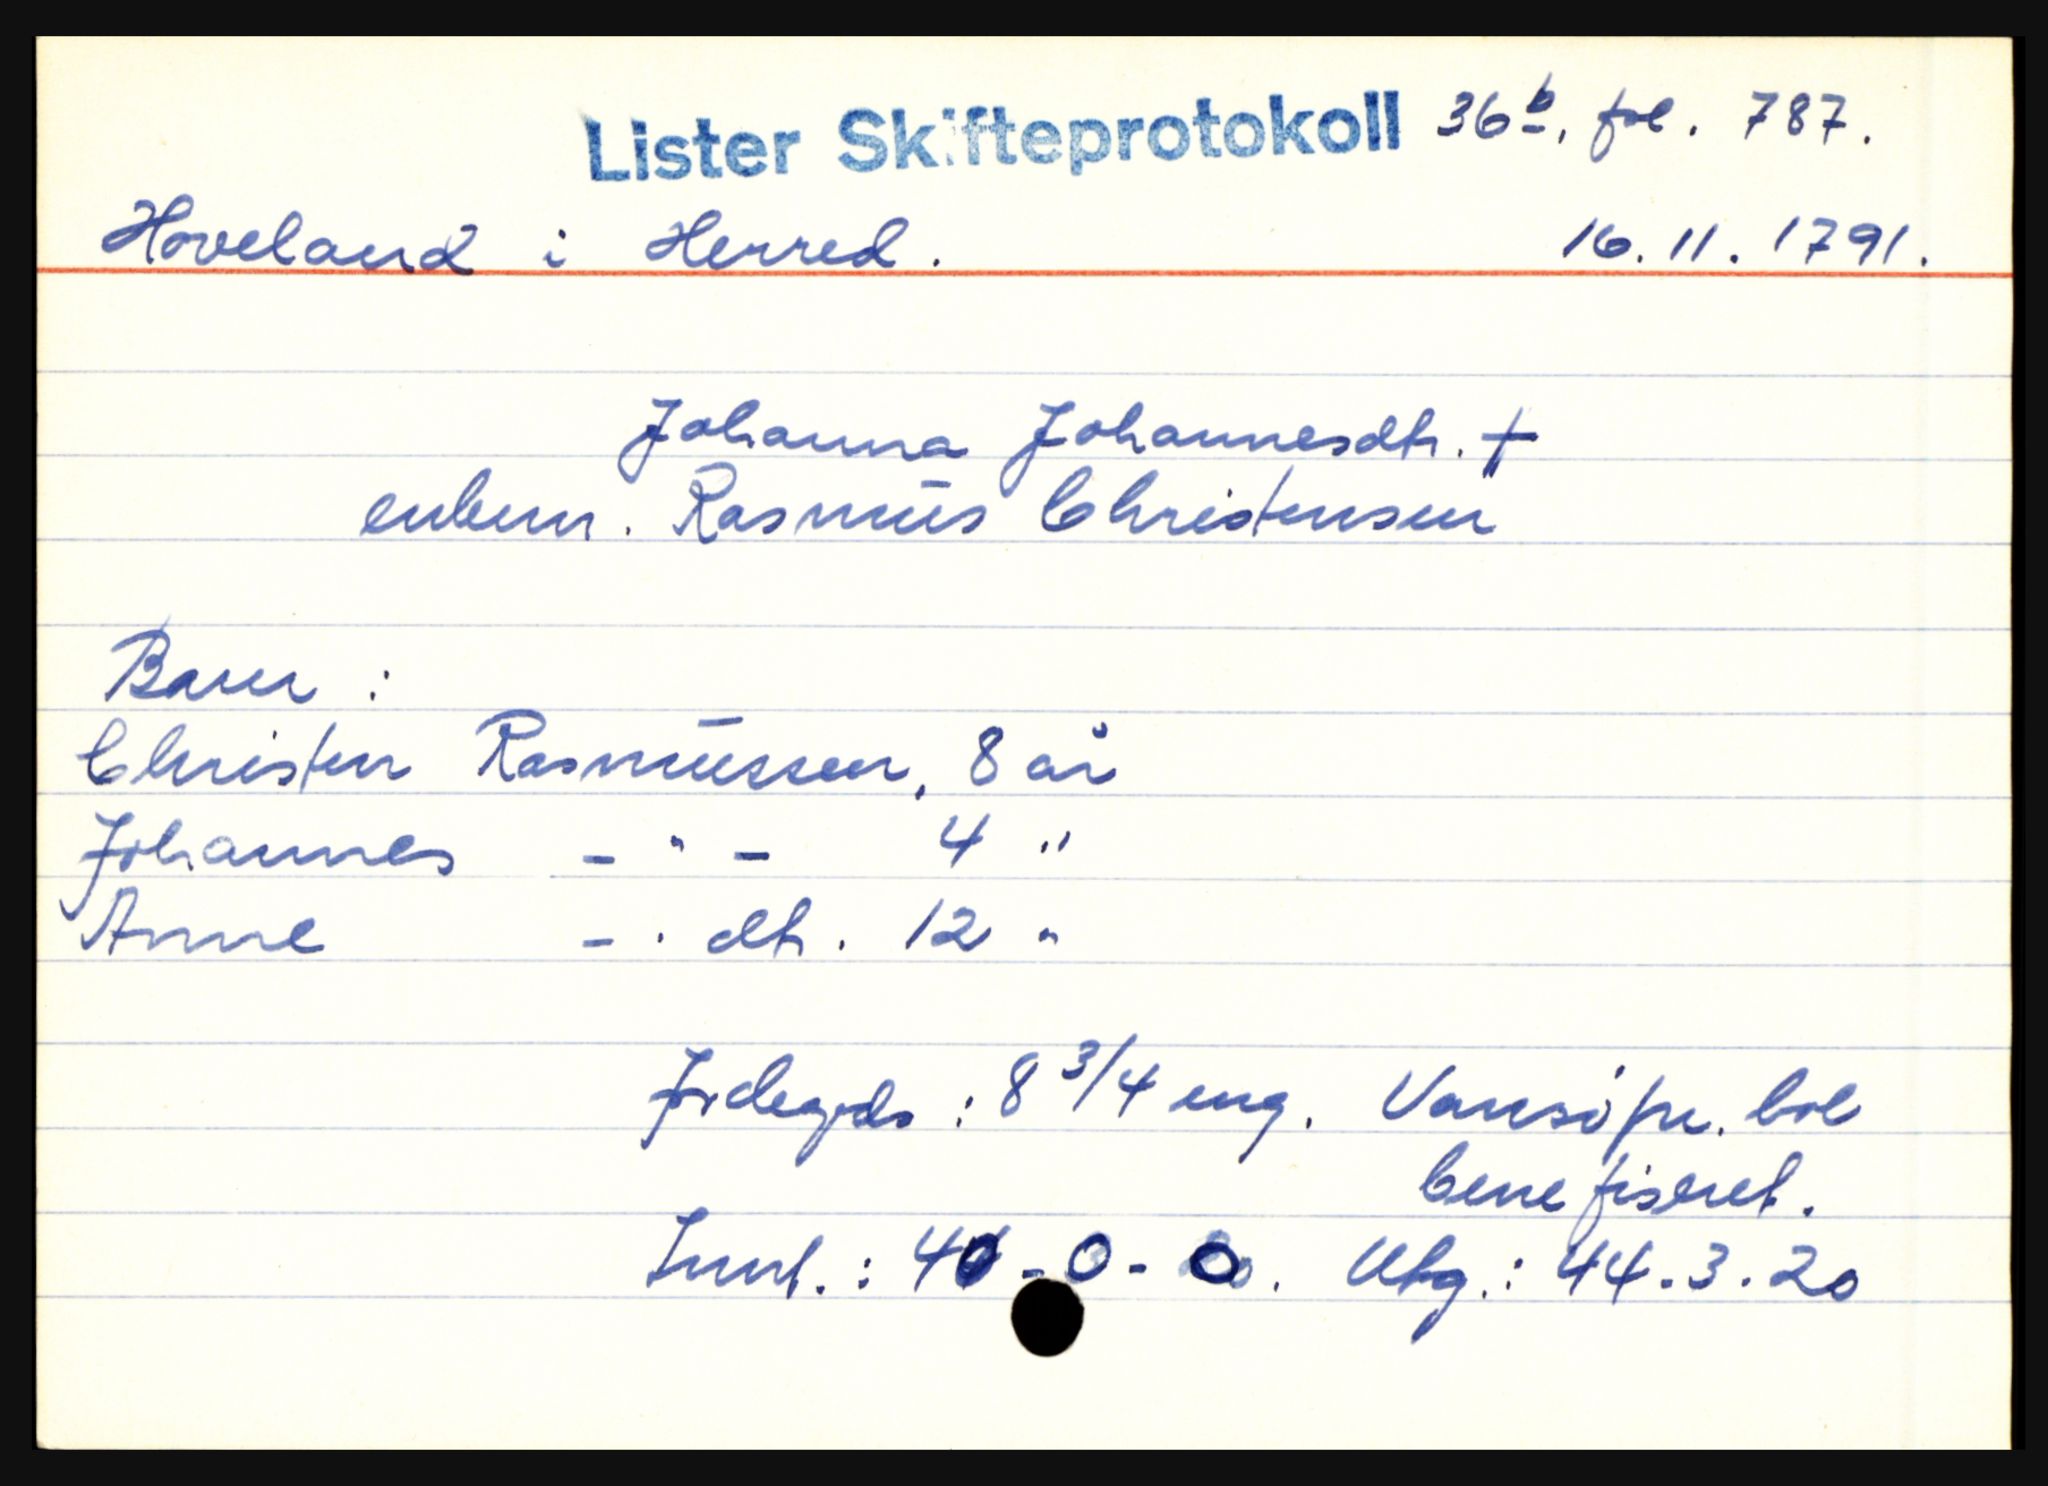 Lister Skifteprotokoll 36b, fol. 787.
Hoveland i Herred. 16.11.1791.
Johanna Johannesdtr. †
enkem. Rasmus Christensen
Barn:
Christen Rasmussen, 8 år
Johannes - " - 4 "
Anne - " dtr. 12 "
Jordegods: 8 3/4 eng. Vansø pr. bol
benefiseret.
Innt.: 40-0-0. Utg.: 44.3.20